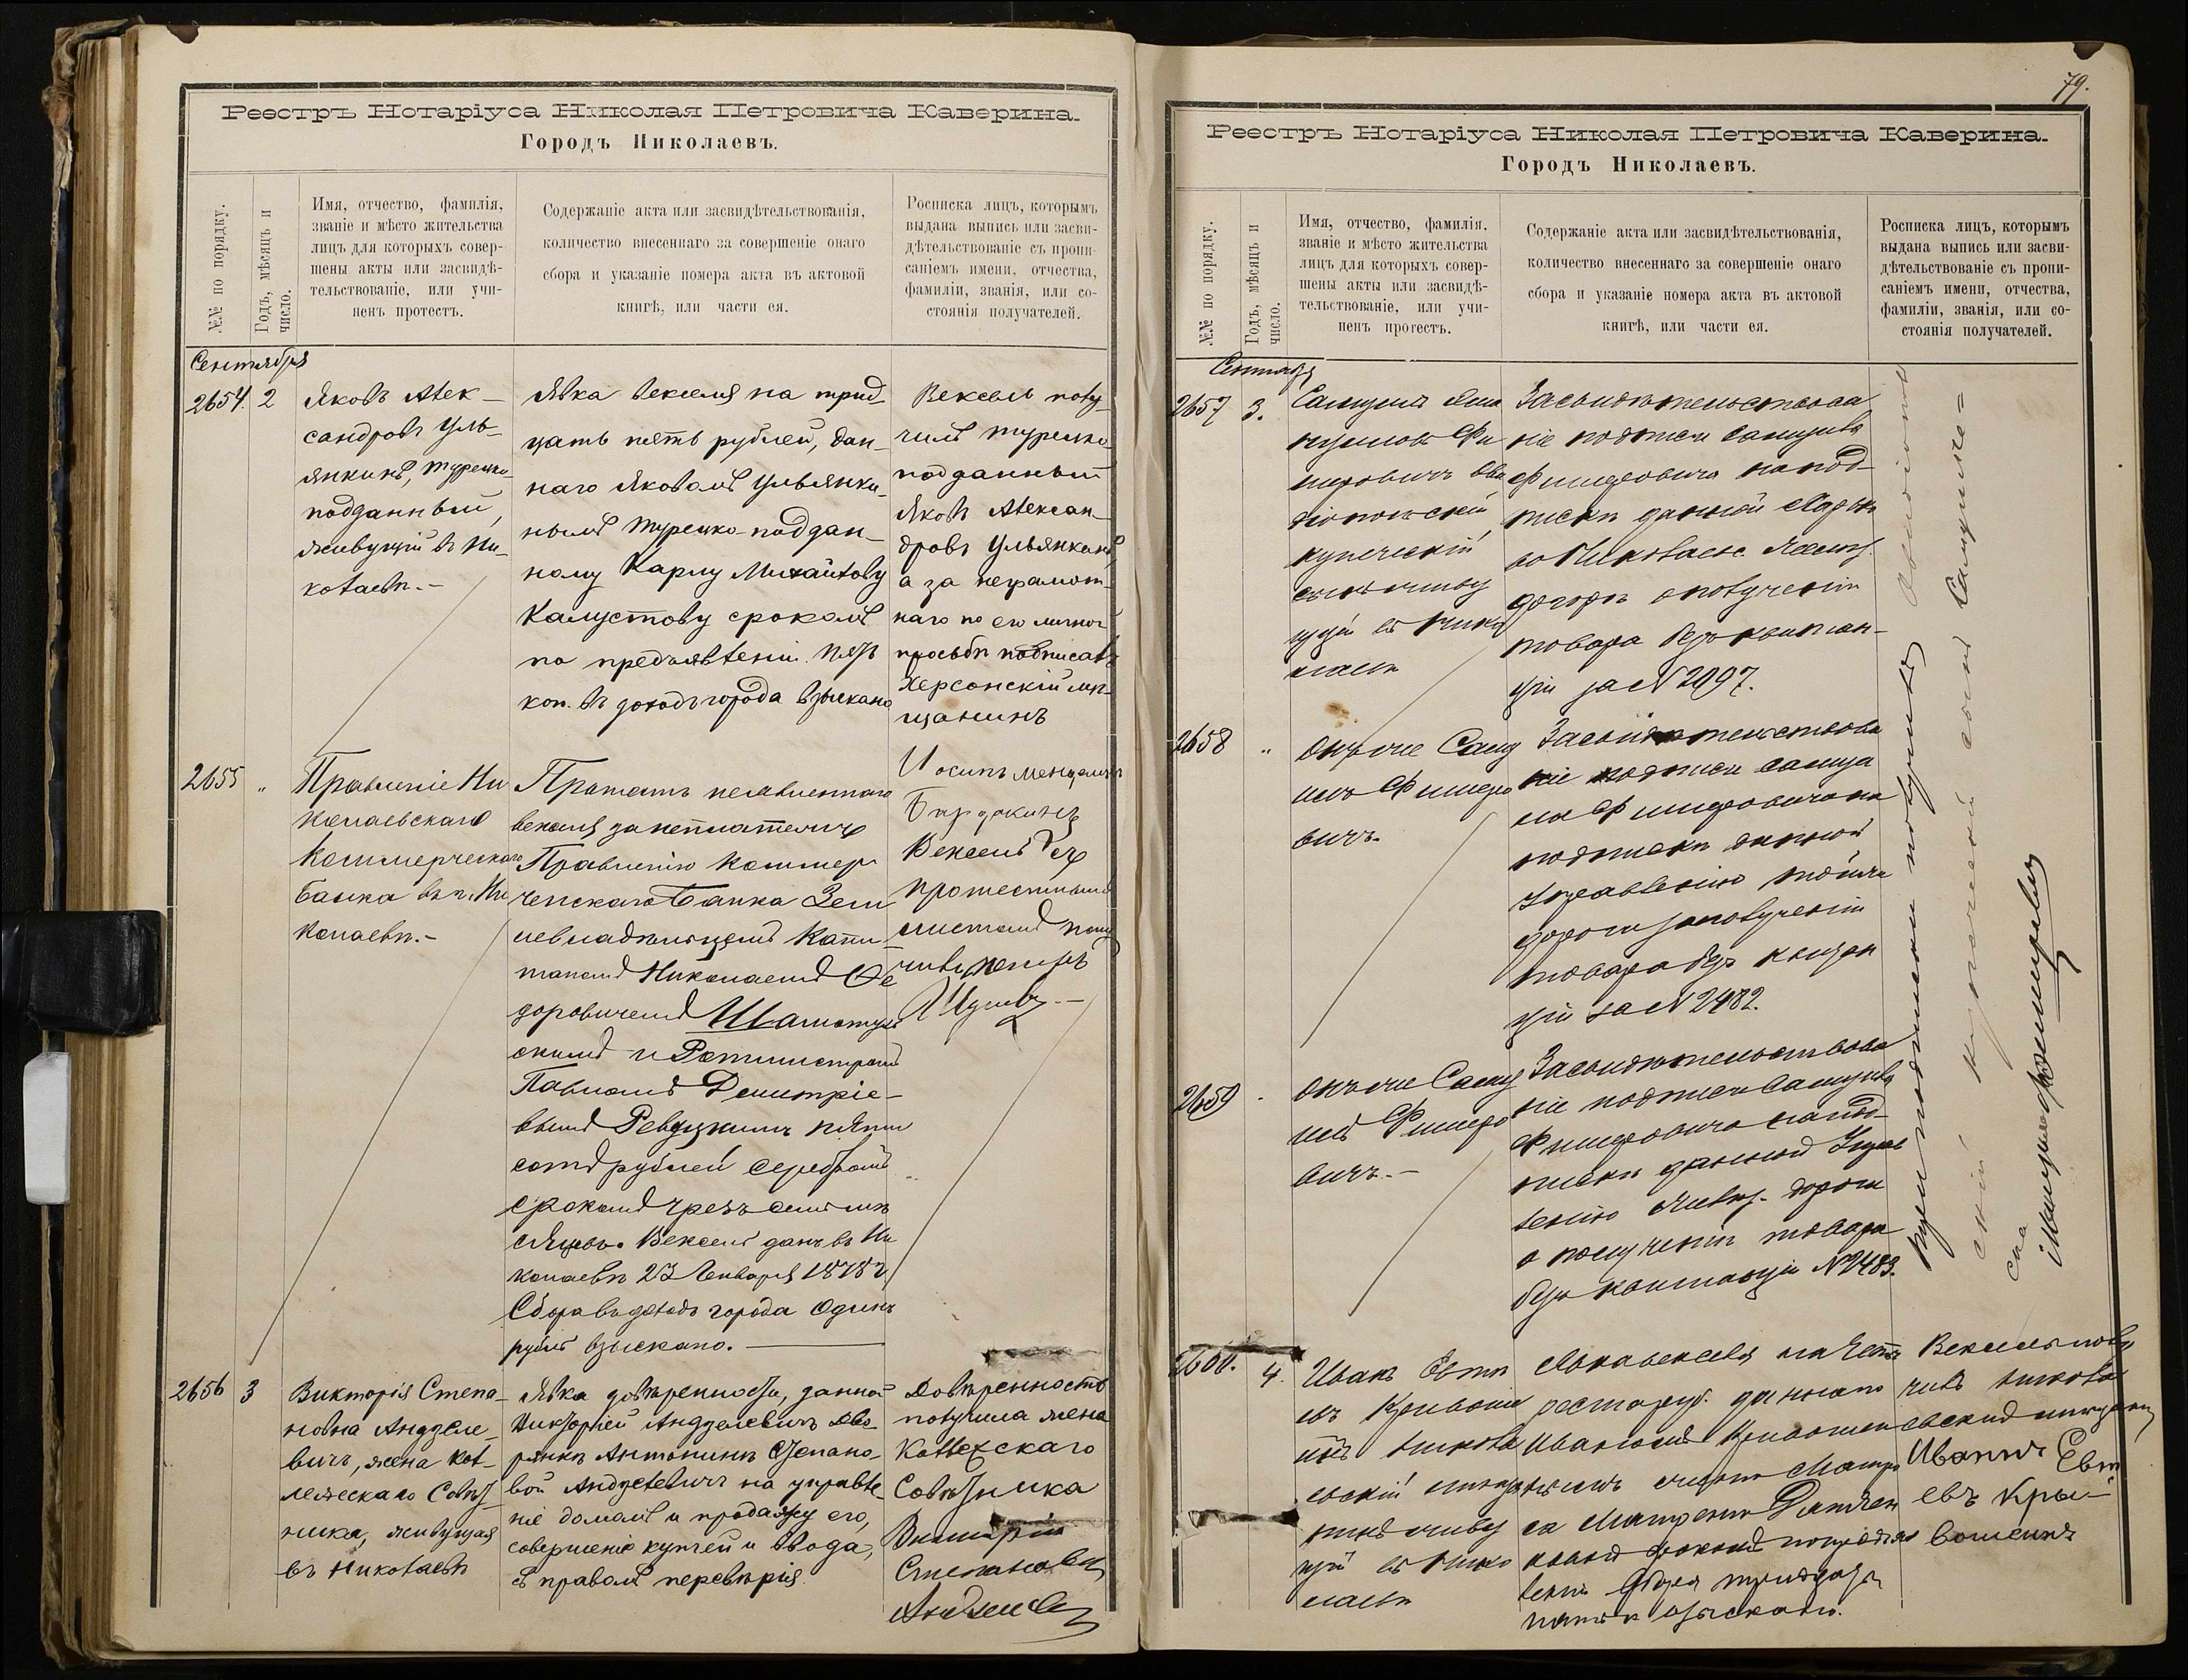 Реестръ Нотаріуса Николая Петровича Каверина.
Городъ Николаевъ.
№№ по порядку.
Годъ, мѣсяцъ и
число.
Имя, отчество, фамилія,
званіе и мѣсто жительства
лицъ для которыхъ совер-
шены акты или засвидѣ-
тельствованіе, или учи-
ненъ протестъ.
Содержаніе акта или засвидѣтельствованія,
количество внесеннаго за совершеніе онаго
сбора и указаніе номера акта въ актовой
книгѣ, или части ея.
Росписка лицъ, которымъ
выдана выпись или засви-
дѣтельствованіе съ пропи-
саніемъ имени, отчества,
фамиліи, званія, или со-
стоянія получателей.
Сентября
2654. 2
Яковъ Алек-
сандровъ Уль-
янкинъ, турецко-
подданный,
живущій въ Ни-
колаевѣ.-
Явка векселя на трид-
цать пять рублей, дан-
наго Яковомъ Ульянки-
нымъ турецко-поддан-
ному Карлу Михайлову
Калустову срокомъ
по предъявленіи. Пять
коп. въ доходъ города взыскано
Вексель полу-
чилъ турецко
подданный
Яковъ Алексан-
дровъ Ульянкинъ,
а за неграмот-
наго по его личной
просьбѣ подписалъ
Херсонскій мѣ-
щанинъ
2655 "
Правленіе Ни
колаевскаго
Коммерческаго
Банка въ г. Ни
колаевѣ.-
Протестъ неявленнаго
векселя за неплатежъ
Правленію Коммер
ческаго Банка Зем
левладѣльцемъ Капи-
таномъ Николаемъ Ѳе
доровичемъ
скимъ и Ротмистромъ
Павломъ Дмитріе-
вымъ Ревуцкимъ пяти
сотъ рублей серебромъ
срокомъ чрезъ семь мѣ
сяцовъ. Вексель данъ въ Ни
колаевѣ 23 Января 1878 г.
Сбора въ доходъ города одинъ
рубль взыскано.
Іосипъ
Вексель съ
протестнымъ
листомъ полу
чилъ
2656 3
Викторія Степа-
новна Андзеле-
вичъ, жена Кол-
лежскаго Совѣт
ника, живущая
въ Николаевѣ
Явка довѣренности, данной
Викторіей Андзелевичъ Дво
рянкѣ Антонинѣ Степано-
вой Андзелевичъ на управле-
ніе домомъ и продажу его,
совершеніе купчей и ввода,
съ правомъ передовѣрія.
Довѣренность
получила жена
Коллежскаго
Совѣтника
Викторія
Степановна
79.
Реестръ Нотаріуса Николая Петровича Каверина.
Городъ Николаевъ.
№№ по порядку.
Годъ, мѣсяцъ и
число.
Имя, отчество, фамилія,
званіе и мѣсто жительства
лицъ для которыхъ совер-
шены акты или засвидѣ-
тельствованіе, или учи-
ненъ протестъ.
Содержаніе акта или засвидѣтельствованія,
количество внесеннаго за совершеніе онаго
сбора и указаніе номера акта въ актовой
книгѣ, или части ея.
Росписка лицъ, которымъ
выдана выпись или засви-
дѣтельствованіе съ пропи-
саніемъ имени, отчества,
фамиліи, званія, или со-
стоянія получателей.
Сентября
2657 3.
Самуилъ
Фи
шеровичъ Ови
діопольскій
купеческій
сынъ живу
щій въ Нико
лаевѣ
Засвидѣтельствова
ніе подписи Самуила
Фишеровича на под-
пискѣ данной
во Николаев.
дороги о полученіи
товара безъ квитан-
ціи за № 2097.
2658 "
Онъ же Саму
илъ Фишеро
вичъ.
Засвидѣтельствова
ніе подписи Самуи
ла Фишеровича на
подпискѣ данной
управленію той же
дороги за полученіи
товара безъ квитан
ціи за № 2482.
2659
Онъ же Саму
илъ Фишеро
вичъ.-
Засвидѣтельствова
ніе подписи Самуила
Фишеровича на под-
пискѣ данной Управ
ленію дороги
о полученіи товара
безъ квитанціи № 2483.
Три подписки получилъ Овидіополь
скій купеческій сынъ Самуилъ
2660. 4.
Иванъ Евти
евъ Кривоше
инъ Никола
евскій мѣща
нинъ живу
щій въ Нико
лаевѣ
Явка векселя на
рубл. даннаго
Иваномъ Кривошеи
нымъ
срокомъ по предъяв
леніи Сбора тридцать
пять к взыскано.
Вексель полу
чилъ Никола
евскій мѣщанинъ
Иванъ Евти
евъ Кры-
вошеинъ